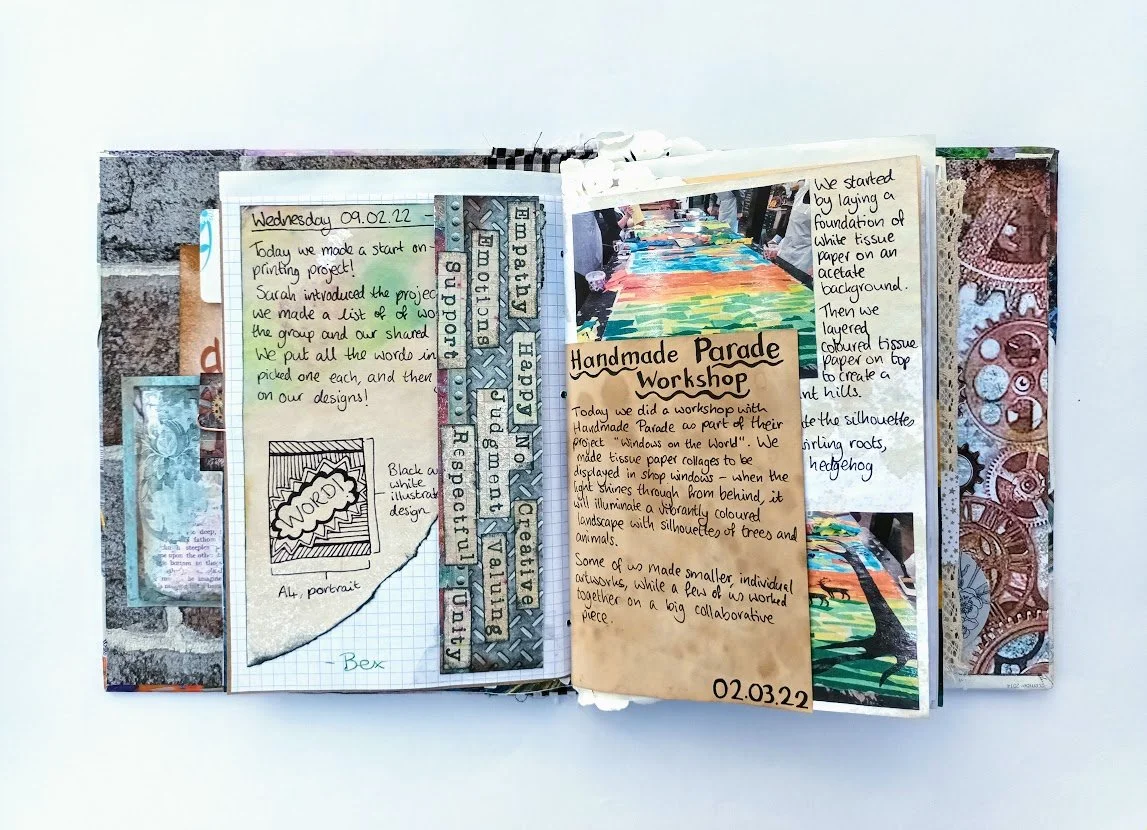 Wednesday 09.02.22 -
Today we made a start on
printing project!
Sarah introduced the projec
we made a list of of wo
the group and our shared
We put all the words in
picked one each, and then
on our designs!
WORD!
Black a
while
illustrat
design
A4, portrait
- Bex
Support
Respectful
Unity
Emotions
Judgment
Valuing
Empathy
Happy
No
Creative
We started
by laying a
foundation of
white tissue
paper on an
acetate
background.
Then we
layered
coloured tissue
paper on top
to create a
nt hills.
te the silhouettes
irling roots,
hedgehog
Handmade Parade
Workshop
Today we did a workshop with
Handmade Parade as part of their
project "Windows on the World". We
made tissue paper collages to be
displayed in shop windows - when the
light shines through from behind, it
will illuminate a vibrantly coloured
landscape with silhouettes of trees and
animals.
Some of us made smaller, individual
artworks, while a few of us worked
together on a big collaborative
piece.
02.03.22